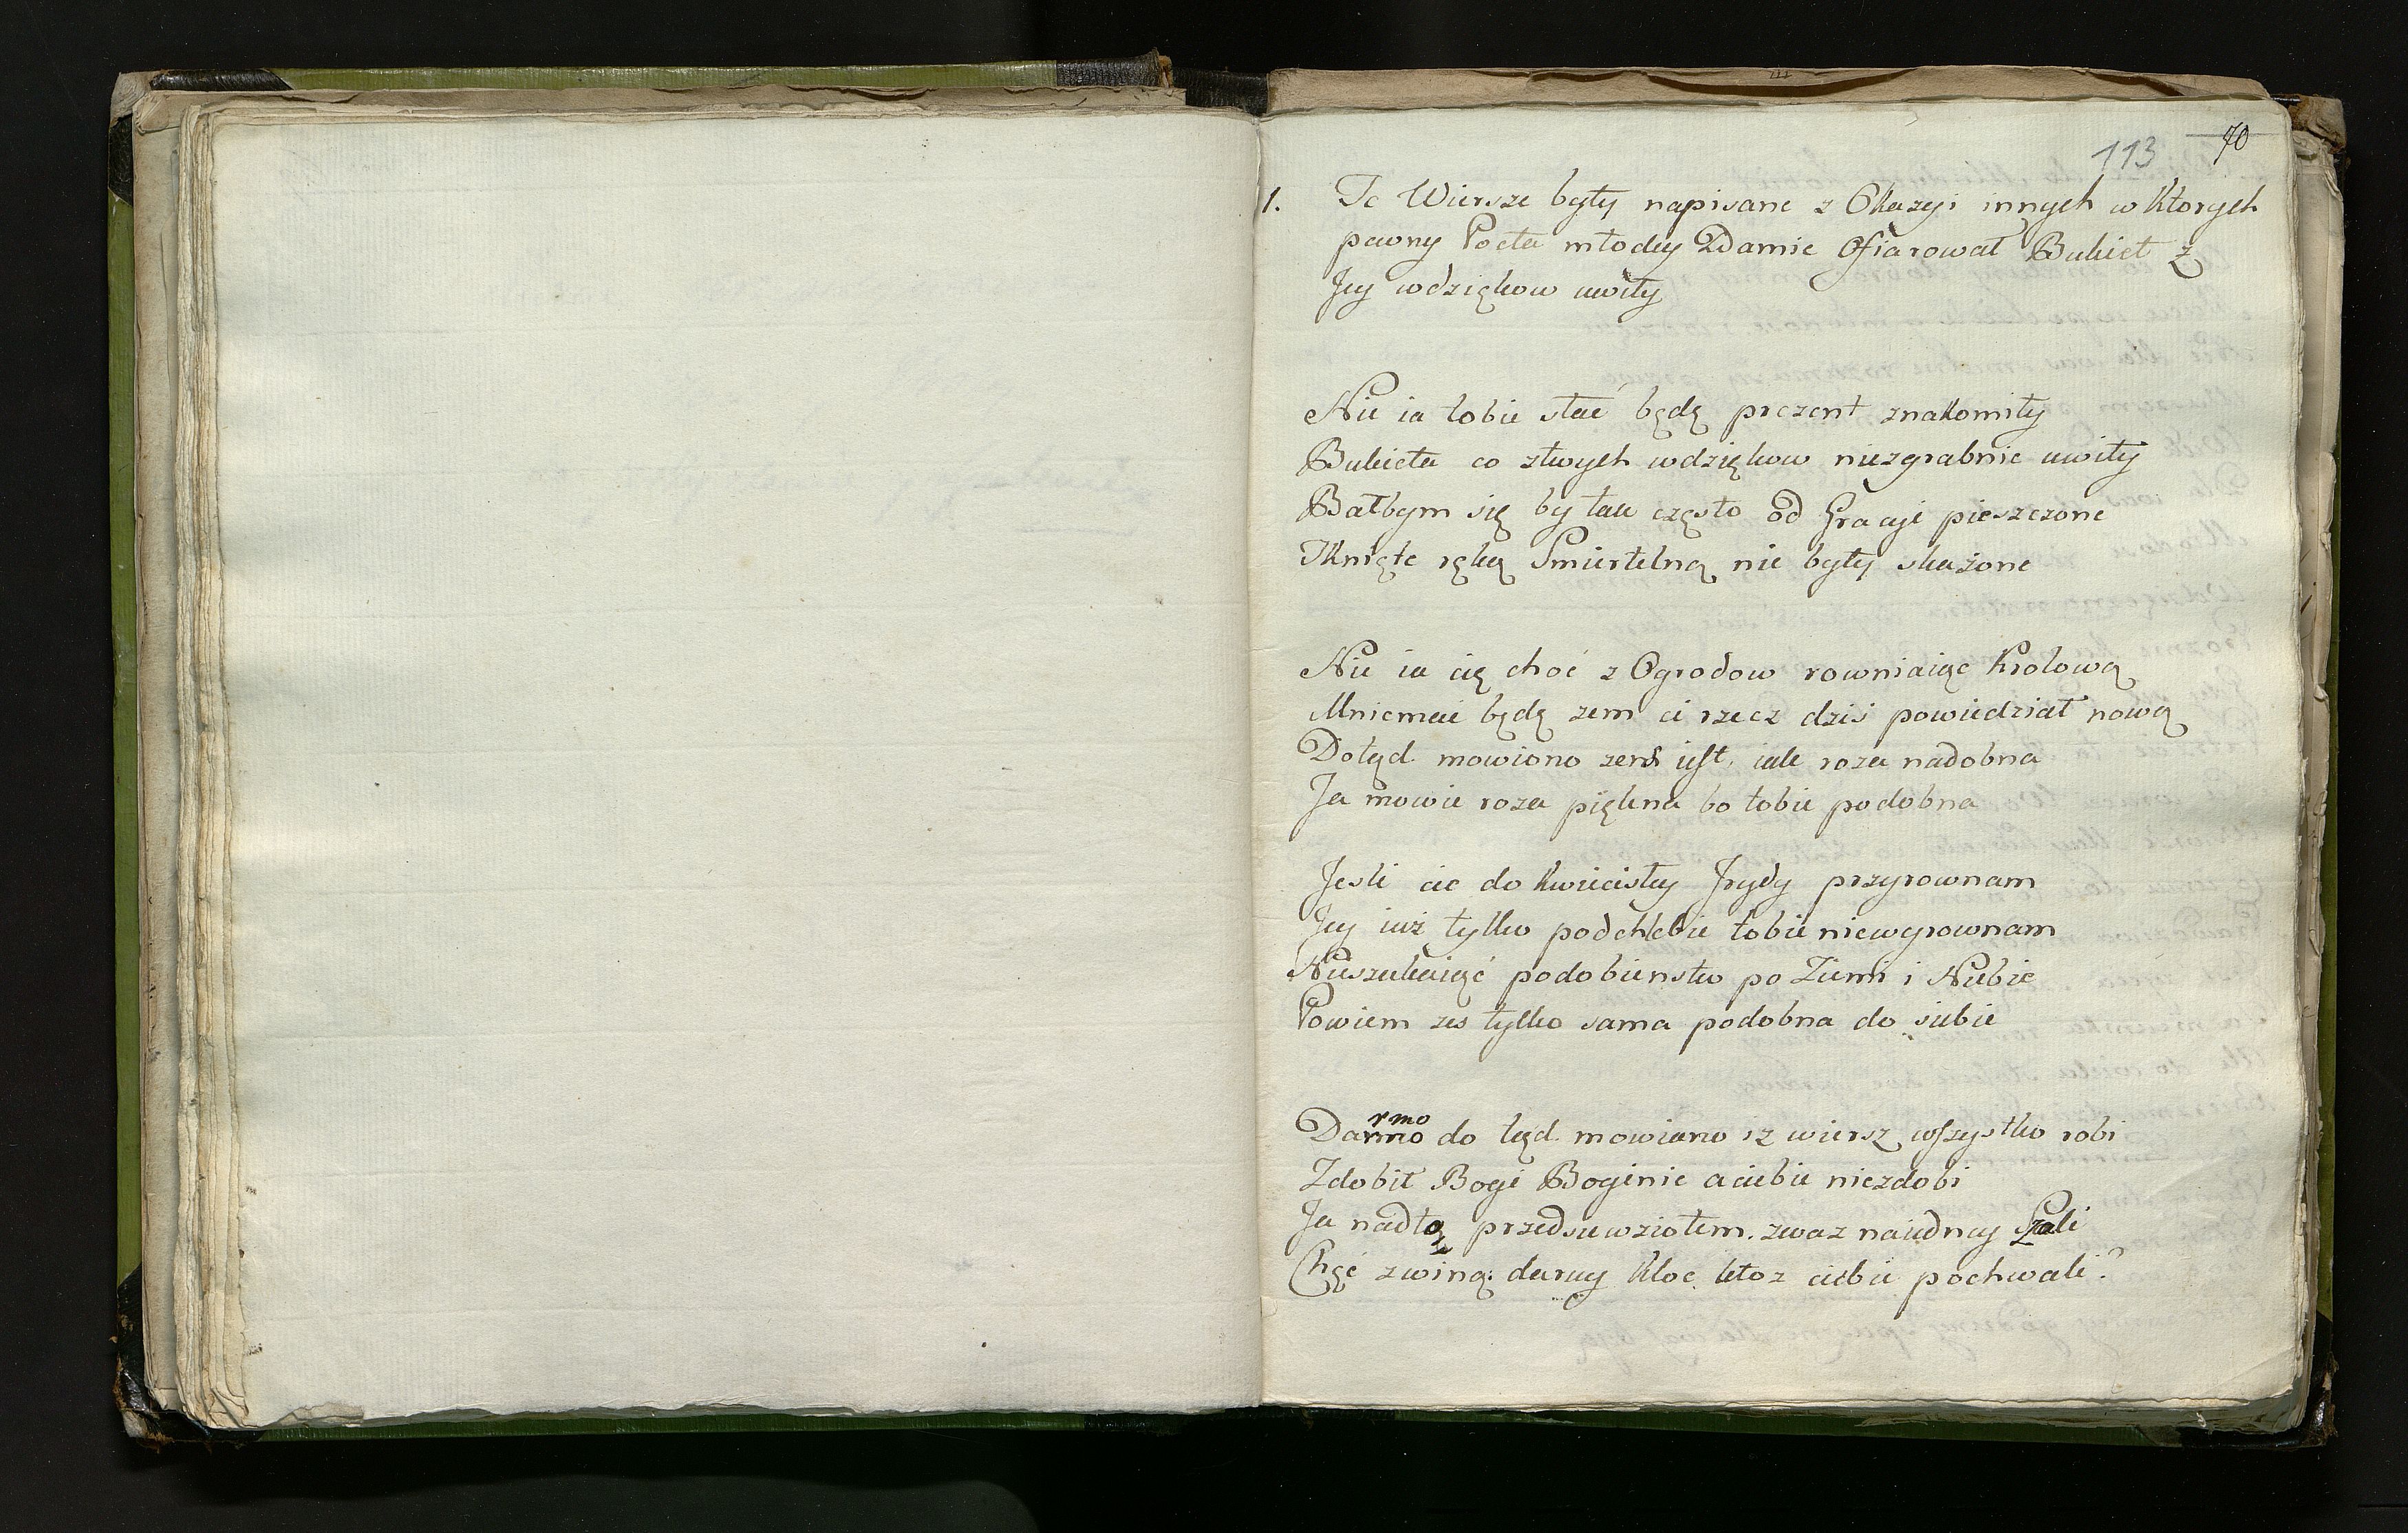 113 70
1. Te Wiersze były napisane z Okazyi innych w Ktorych
pewny Poeta młodey Damie Ofiarował Bukiet z
Jey wdziękow uwity
Nie ia tobie słać będę prezent znakomity
Bukieta co ztwych wdziękow niezgrabnie uwity
Bałbym się by tak często od Gracyi pieszczone
Tknięte ręką Smiertelną nie były skażone
Nie ia cię choć z Ogrodow rowniaiąc Krolową
Mniemać będę zem ci rzecz dziś powiedział nową
Dotąd mowiono zens iest, iak roza nadobna
Ja mowie roza piękna bo tobie podobna
Jesli cie do Kwiecistey Jrydy przyrownam
Jey iuż tylko podchlebie tobie niewyrownam
Nieszukaiąć podobienstw po Ziemi i Niebie
Powiem zes tylko sama podobna do siebie
Darmo do tąd mowiono iz wiersz wszystko robi
rmo
Zdobił Bogi Boginie aciebie niezdobi
Ja nadto przedsiewziołem. zwaz naiedney Szali
Chęć zwiną: daruy Kloe ktoz ciebie pochwali?